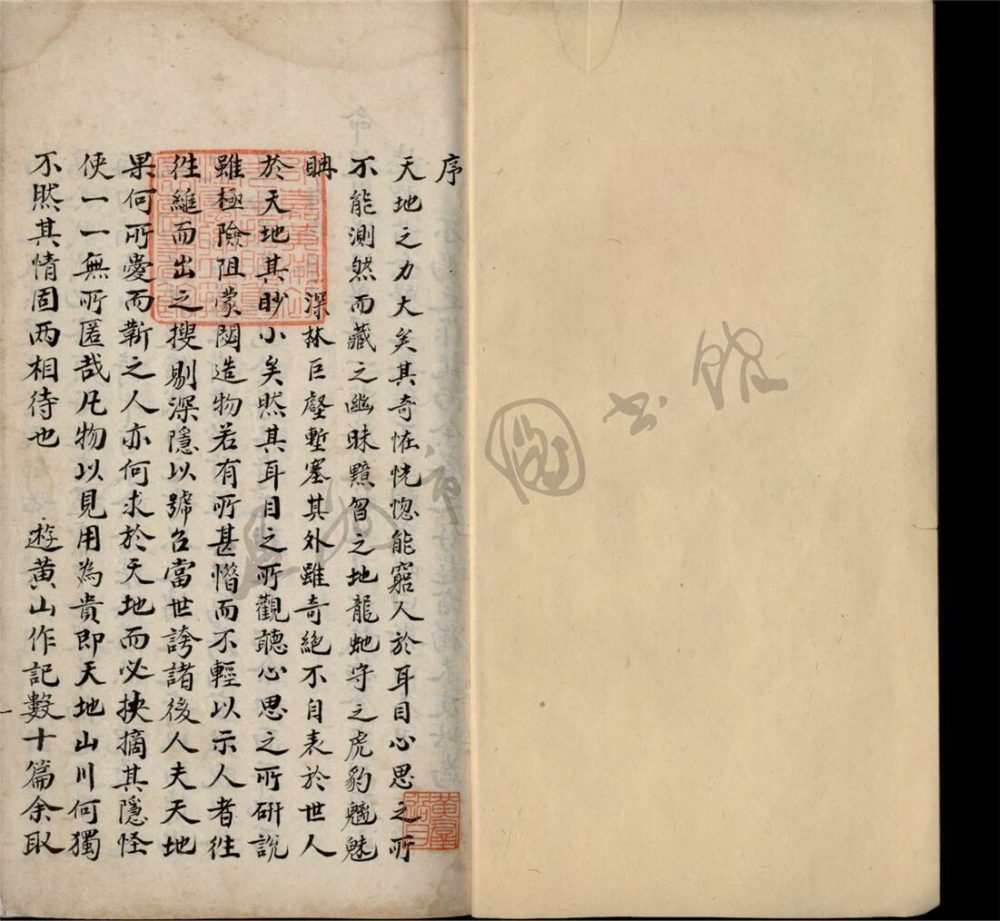 序
天地之力大矣其奇恠恍惚能窮人於耳目心思之所
不能測然而藏之幽昧黯曶之地龍虵守之虎豹魑魅
深林巨壑塹塞其外雖奇絕不自表於世人
於天地其眇小矣然其耳目之所觀聽心思之所研說
雖極險阻蒙閟造物若有所甚惜而不輕以示人者往
往縋而出之搜剔深隱以號召當世誇諸後人夫天地
果何所愛而靳之人亦何求於天地而必抉摘其隱怪
使一一無所匿哉凡物以見用為貴即天地山川何獨
不然其情固两相待也 遊黃山作記數十篇余取